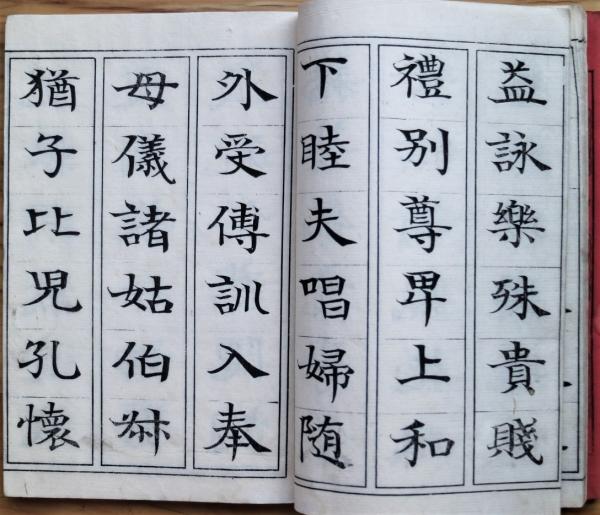 益詠樂殊貴賤
禮别尊卑上和
下睦夫唱婦随
外受傅訓入奉
母儀諸姑伯叔
猶子比児孔懷